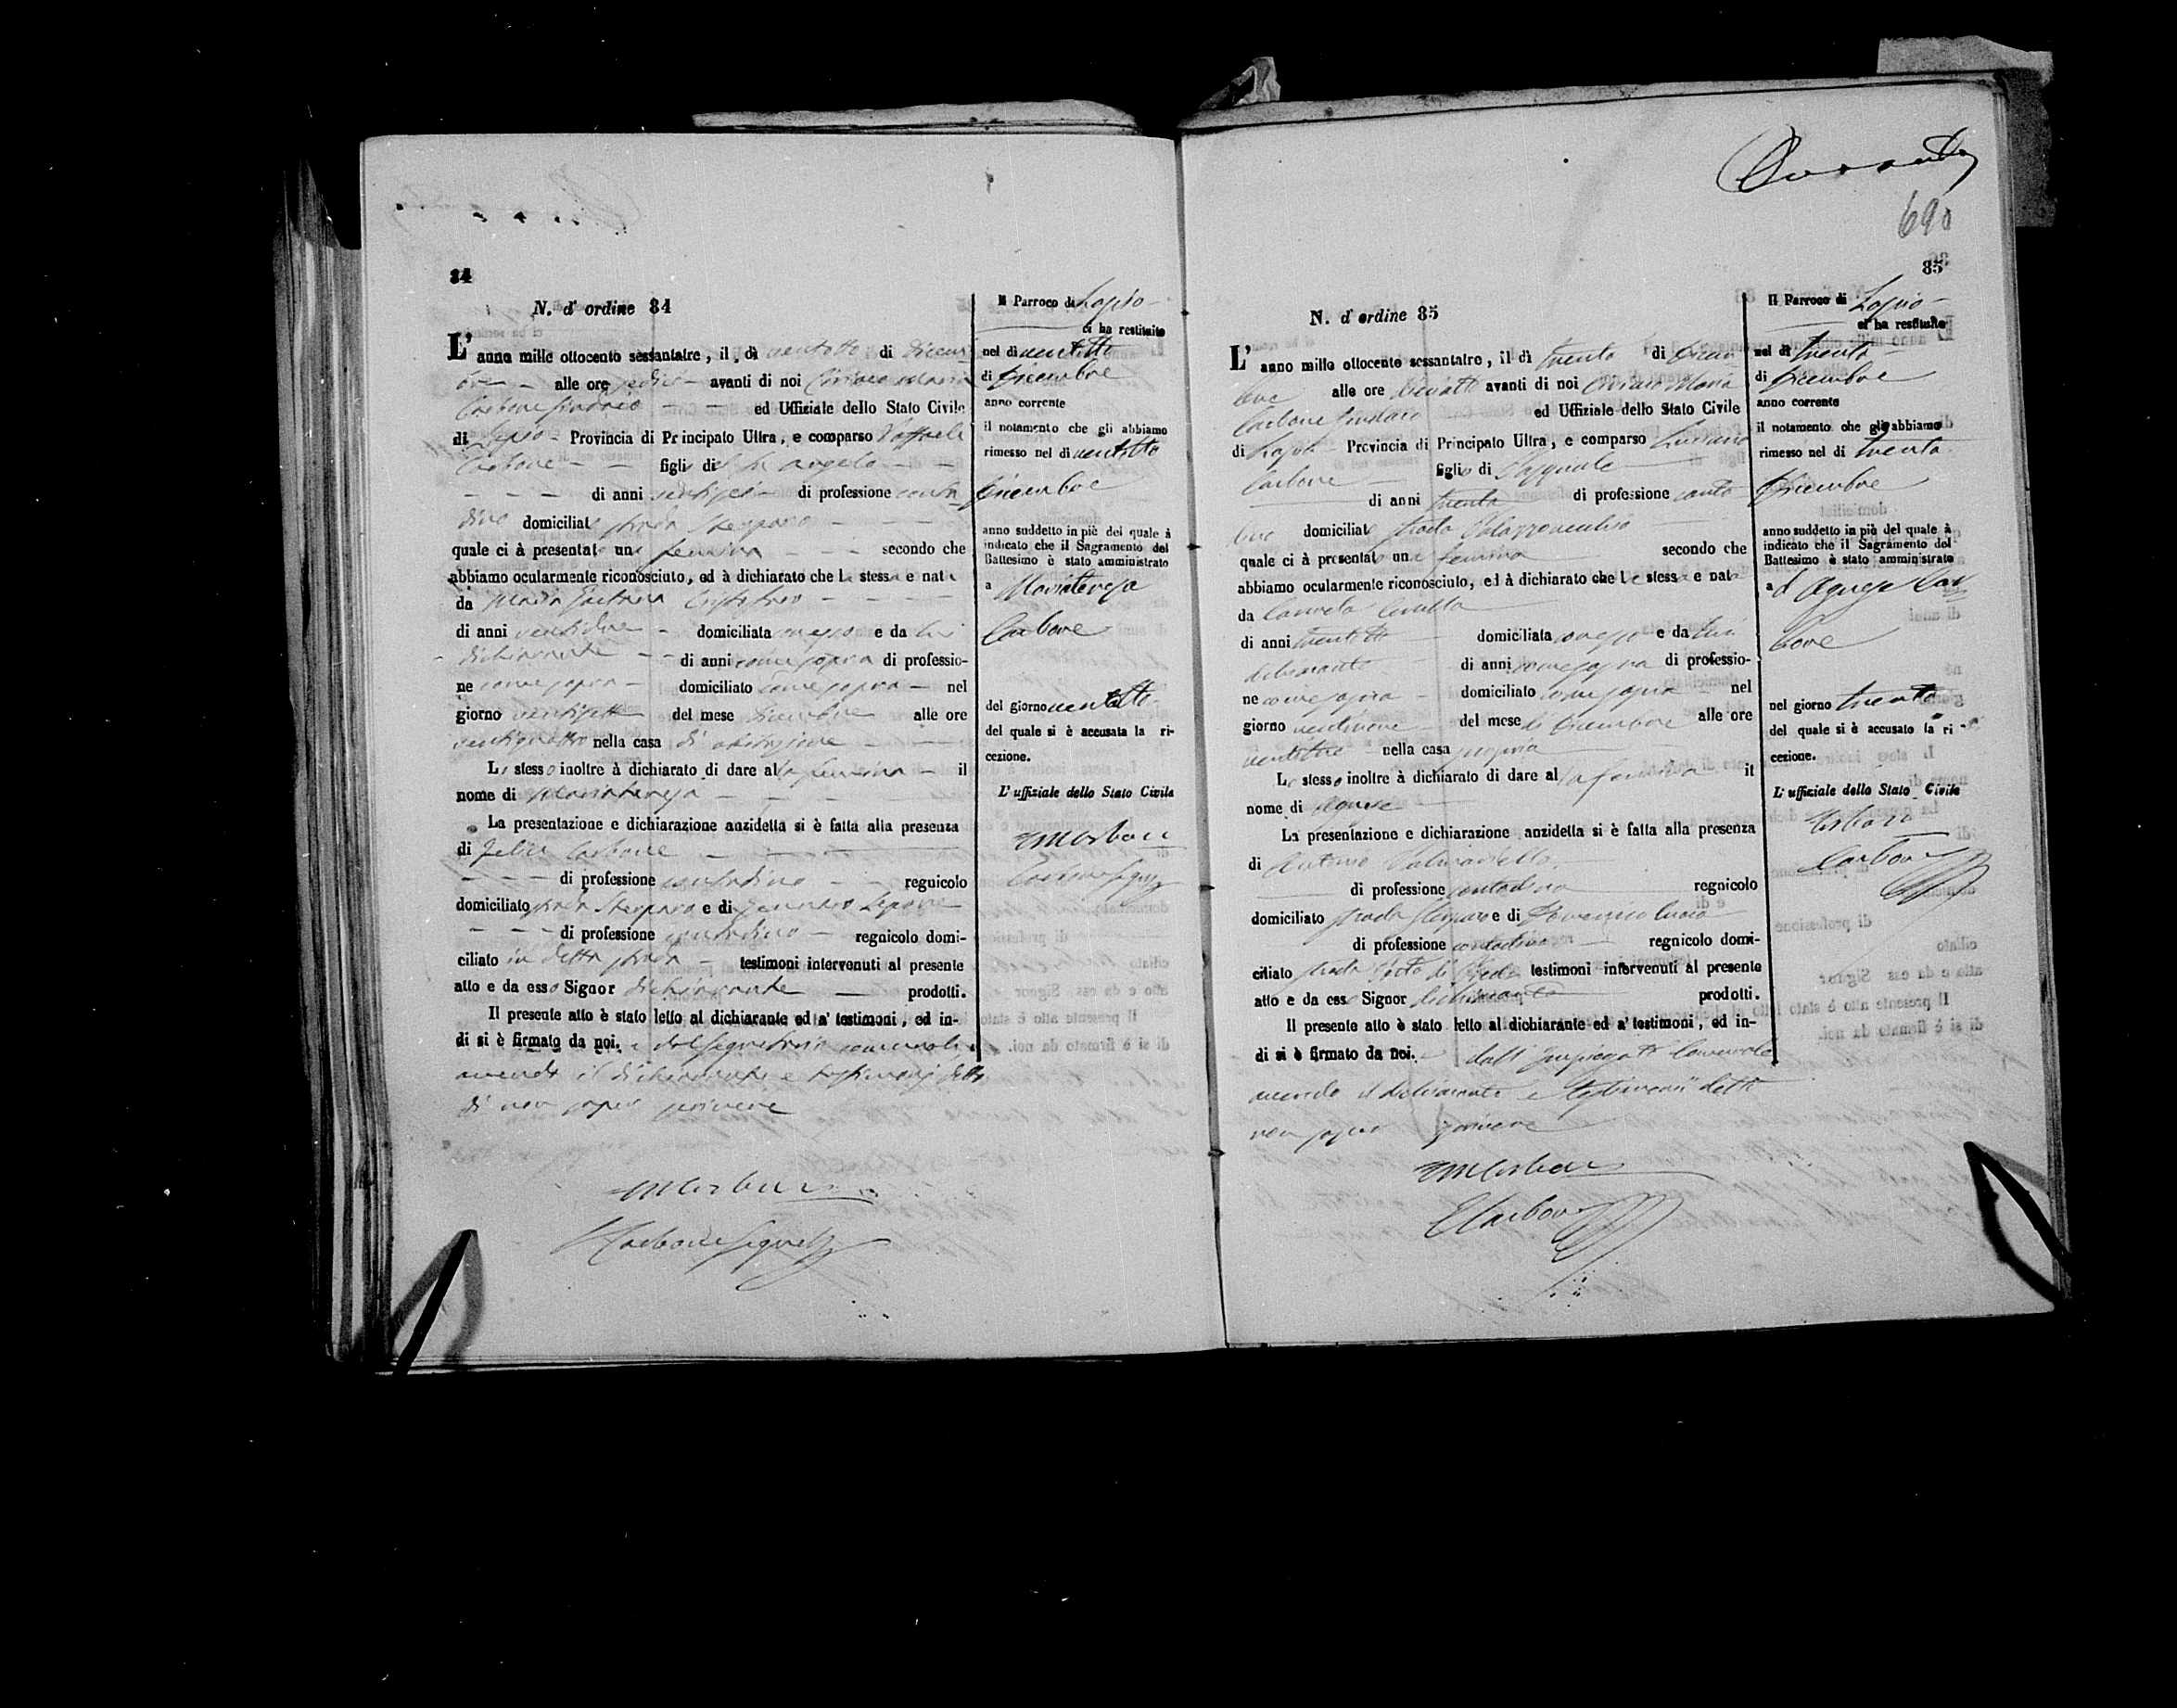 84
N. d' ordine 84
L' anno mille ottocento sessantatre, il dì ventotto di Dicem
bre alle ore sedici avanti di noi Ciriaco Maria
Carbone Sindaco ed Uffiziale dello Stato Civile
di Lapio Provincia di Principato Ultra, e comparso Raffaele
Carbone figlio di Angelo
di anni ventisei di professione conta
dino domiciliato strada
quale ci à presentato una femina secondo che
abbiamo ocularmente riconosciuto, ed à dichiarato che la stessa e nata
da Maria Gaetana
di anni ventidue domiciliata e da lui
dichiarante di anni come sopra di professio-
ne come sopra domiciliato come sopra nel
giorno ventisette del mese Dicembre alle ore
ventiquattro nella casa di abitazione
Lo stesso inoltre à dichiarato di dare alla femina il
nome di Mariateresa
La presentazione e dichiarazione anzidetta si è fatta alla presenza
di Felice Carbone
di professione contadino regnicolo
domiciliato strada e di Gennaro
di professione contadino regnicolo domi-
ciliato in detta strada testimoni intervenuti al presente
atto e da esso Signor dichiarante prodotti.
Il presente atto è stato letto al dichiarante ed a' testimoni, ed in-
di si è firmato da noi. e dal Segretario comunale
avendo il dichiarante e testimonj detto
di non saper scrivere
Carbone
Il Parroco di Lapio
ci ha restituito
nel dì ventotto
di Dicembre
anno corrente
il notamento che gli abbiamo
rimesso nel dì ventotto
Dicembre
anno suddetto in piè del quale à
indicato che il Sagramento del
Battesimo è stato amministrato
a Mariateresa
Carbone
del giorno ventotto
del quale si è accusata la ri-
cezione.
L' uffiziale dello Stato Civile
690
85
N. d' ordine 85
L' anno mille ottocento sessantatre, il dì trenta di Dicem
bre alle ore avanti di noi Ciriaco Maria
Carbone Sindaco ed Uffiziale dello Stato Civile
di Lapio Provincia di Principato Ultra, e comparso
Carbone figlio di Pasquale
di anni trenta di professione conta
dino domiciliato strada
quale ci à presentato una femina secondo che
abbiamo ocularmente riconosciuto, ed à dichiarato che la stessa e nata
da
di anni domiciliata e da lui
dichiarante di anni come sopra di professio-
ne come sopra domiciliato come sopra nel
giorno ventinove del mese di Dicembre alle ore
nella casa propria
Lo stesso inoltre à dichiarato di dare alla femina il
nome di Agnese
La presentazione e dichiarazione anzidetta si è fatta alla presenza
di Antonio
di professione contadino regnicolo
domiciliato strada e di Domenico
di professione contadino regnicolo domi-
ciliato strada testimoni intervenuti al presente
atto e da esso Signor dichiarante prodotti.
Il presente atto è stato letto al dichiarante ed a' testimoni, ed in-
di si è firmato da noi. e dall' Impiegato Comunale
avendo il dichiarante e testimonii detto
non saper scrivere
Carbone
Il Parroco di Lapio
ci ha restituito
nel dì trenta
di Dicembre
anno corrente
il notamento che gli abbiamo
rimesso nel dì trenta
Dicembre
anno suddetto in piè del quale à
indicato che il Sagramento del
Battesimo è stato amministrato
ad Agnese Car
bone
nel giorno trenta
del quale si è accusato la ri-
cezione.
L' uffiziale dello Stato Civile
Carbone